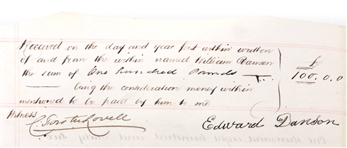 Received on the day and year first within written
of and from the within named William Dawson
the sum of One hundred Pounds
£
100.0.0
being the consideration money within
mentioned to be paid by him to me
Witness
Edward Dawson